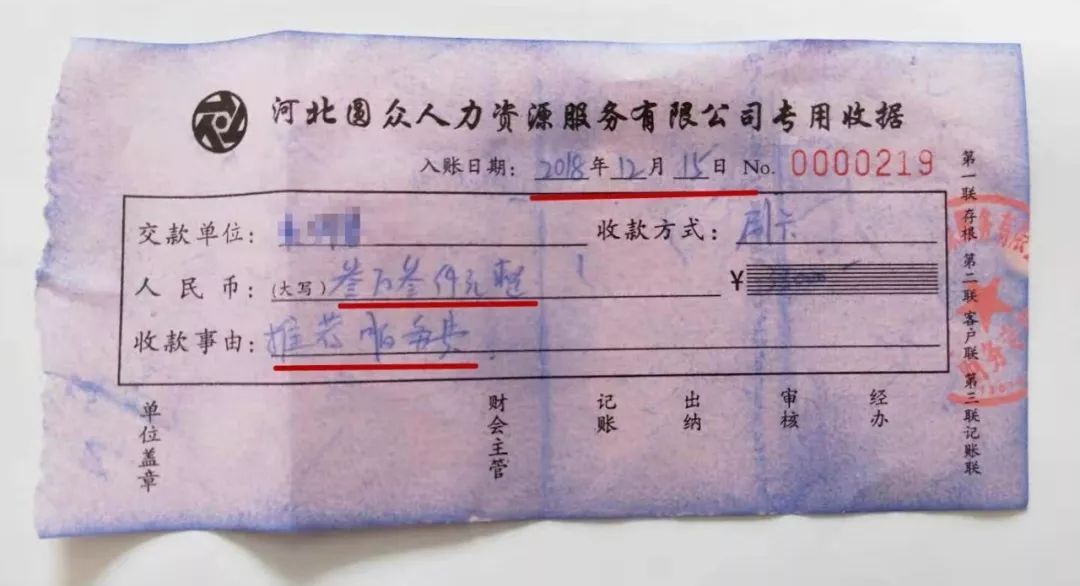 河北圆众人力资源服务有限公司专用收据
入账日期：2018年12月15日 No. 0000219
交款单位： 收款方式：刷卡
人民币：(大写) 叁万叁仟元整 ¥
收款事由：推荐服务费
单位盖章 财会主管 记账 出纳 审核 经办
第一联存根 第二联客户联 第三联记账联